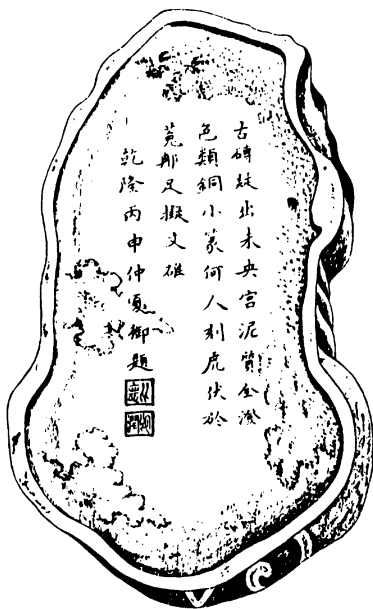 古磚疑出未央宮泥質全澄
色類銅小篆何人刻虎伏於
菟那足擬文雄
乾隆丙申仲夏御題